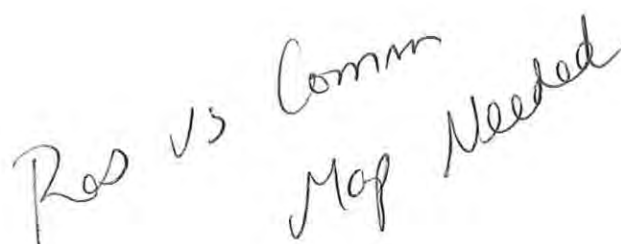 Res vs Comm
Map Needed